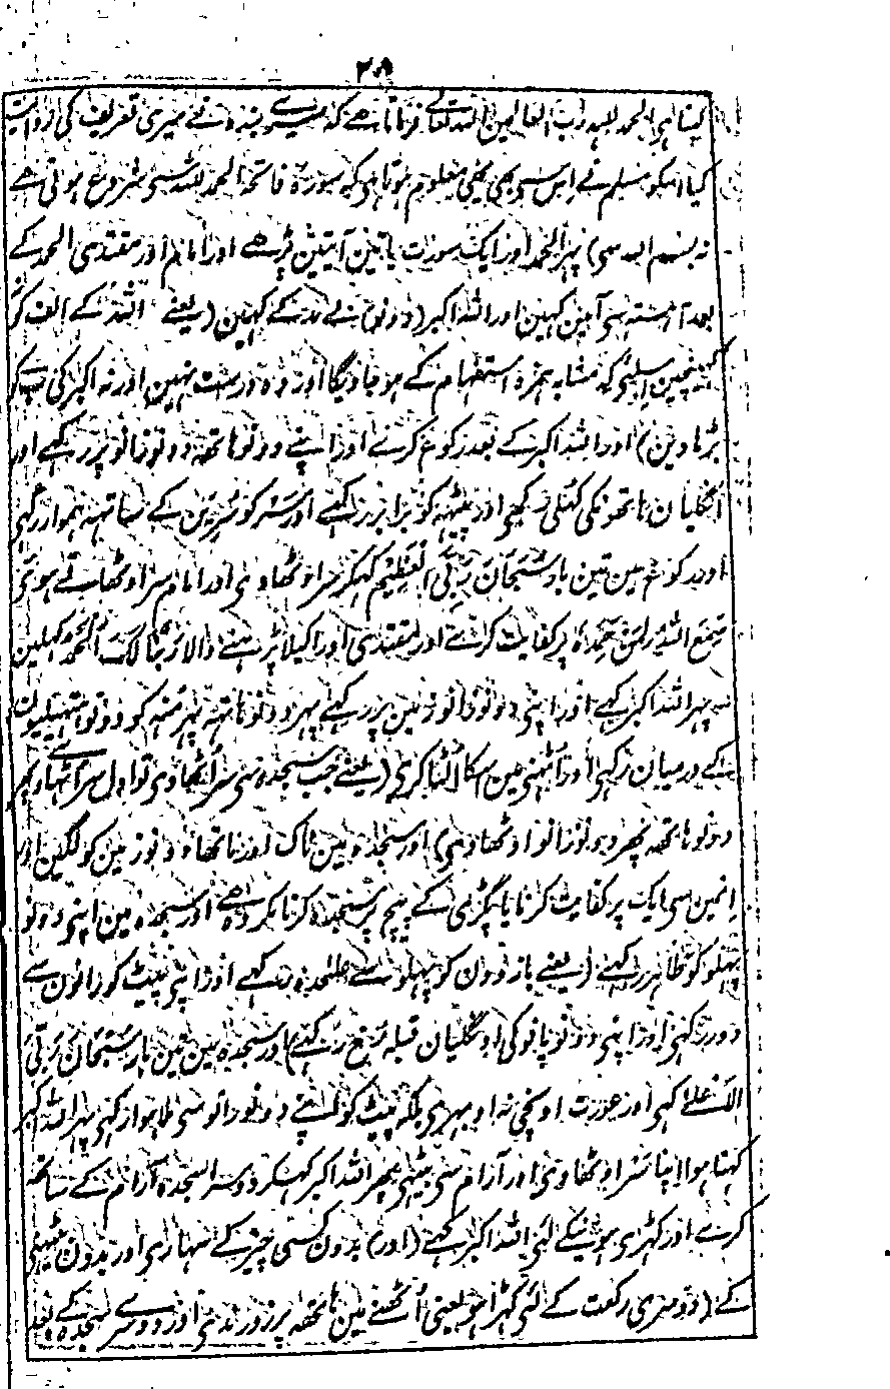 ۲۵
کہتا ہی الحمد للہ رب العالمین اللہ تعالے فرماتا ہے کہ میرے بندہ نے میری تعریف کی روایت
کیا اسکو مسلم نے اس سی بھی یہی معلوم ہوتا ہی کہ سورۃ فاتحہ الحمد للہ سی شروع ہوتی ہے
نہ بسم اللہ سی) پہر الحمد اور ایک سورت یا تین آیتین پڑہے اور امام اور مقتدی الحمد کے
بعد آہستہ سی آمین کہین اور اللہ اکبر (دونو) بے مد کے کہین (یعنے اللہ کے الف کو
کہینچین اسلئی کہ مشابہ ہمزہ استفہام کے ہو جاویگا اور وہ درست نہین اور نہ اکبر کی ب کو
بڑہاوین) اور اللہ اکبر کے بعد رکوع کرے اور اپنے دونو ہاتھہ دونو زانو پر رکہے اور
انگلیان ہاتھونکی کہلی رکہی اور پیٹہہ کو برابر رکہے اور سر کو سرین کے ساتہہ ہموار رکہی
اور رکوع مین تین بار سُبحَانَ رَبِّیَ العَظِیم کہکر سر اوٹھاوی اور امام سر اوٹھاتے ہوی
سَمِعَ اللہُ لِمَن حَمِدَہ پر کفایت کرے اور مقتدی اور اکیلا پڑہنے والا رَبَّنَا لَکَ الحَمد کہلین
پہر اللہ اکبر کہے اور اپنی دونو زانو زمین پر رکہے پہر دونو ہاتہہ پہر منہ کو دونو ہتہیلیون
کے درمیان رکہی اور اٹہنی مین اسکا الٹا کری (یعنے جب سجدہ سی سر اُٹھاوی تو اول سر اٹھاوے پہر
دونو ہاتھہ پھر دونو زانو اوٹھاوی) اور سجدہ مین ناک اور ماتھا دونو زمین کو لگین اور
انمین سی ایک پر کفایت کرنا یا پگڑی کے پیچ پر سجدہ کرنا مکروہ ہے اور سجدہ مین اپنی دونو
پہلو کو ظاہر رکہے (یعنے بازوون کو پہلو سے علٰحدہ رکہے اور اپنی پیٹ کو رانون سے
دور رکہی اور اپنی دونو پانو کی اوگلیان قبلہ رخ رکہے) اور سجدہ مین تین بار سُبحَانَ رَبِّیَ
الاَعلےٰ کہی اور عورت اونچی نہ اوبہری بلکہ پیٹ کو اپنے دونو رانو سی ملا ہوا رکہی پہر اللہ اکبر
کہتا ہوا اپنا سر اوٹھاوی اور آرام سی بیٹہی پھر اللہ اکبر کہکر دوسرا سجدہ آرام کے ساتھہ
کرے اور کہڑی ہونیکے لئی اللہ اکبر کہے (اور) بدون کسی چیز کے سہاری اور بدون بیٹہنی
کے (دوسری رکعت کے لئی کہڑا ہو یعنی اُٹھنے مین ہاتھہ پر زور ندی اور دوسرے سجدہ کے بعد